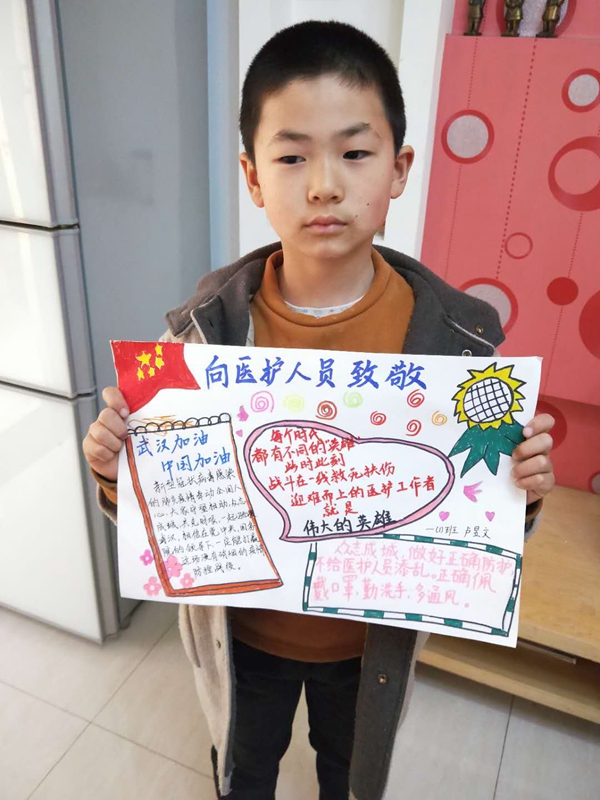 向医护人员致敬
武汉加油
中国加油
新型冠状病毒感染
的肺炎疫情牵动全国人
心,大家守望相助,众志
成城,共克时艰,一起
武汉,相信在党中央、国务
的领导下,一定能打赢
这场没有硝烟的疫情
防控战役。
每个时代
都有不同的英雄
此时此刻
战斗在一线救死扶伤
迎难而上的医护工作者
就是
伟大的英雄
班 卢昱文
众志成城,做好正确防护
不给医护人员添乱。正确佩
戴口罩,勤洗手,多通风。